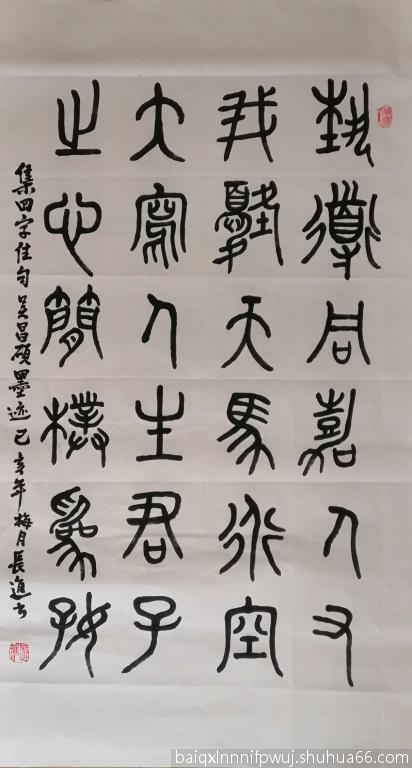 導同嘉人又
我天馬行空
大寫人生君子
之心簡樸為好
集四字佳句吴昌碩墨迹己亥年梅月長進书
baiqxlnnnifpwuj.shuhua66.com